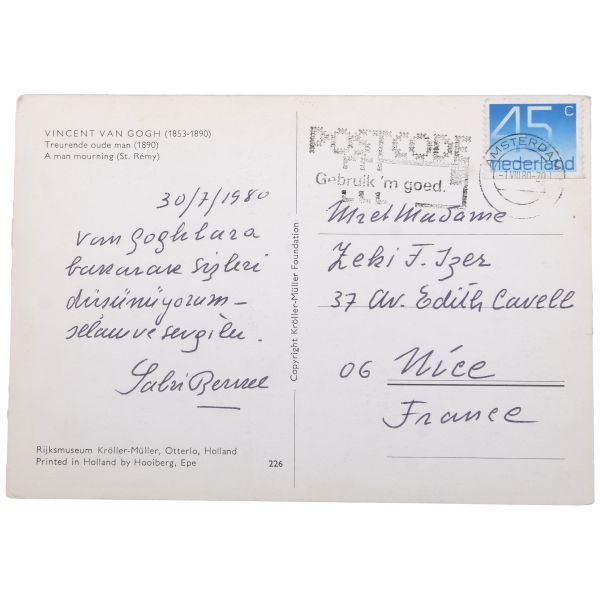 VINCENT VAN GOGH (1853-1890)
Treurende oude man (1890)
A man mourning (St. Rémy)
30/7/1980
Van Goghlara
bakarak sizleri
düşünüyorum –
selam ve sevgiler.
Sabri Berkel
Rijksmuseum Kröller-Müller, Otterlo, Holland
Printed in Holland by Hooiberg, Epe
226
Copyright Kröller-Müller Foundation
POSTCODE
Gebruik 'm goed.
45 c
nederland
AMSTERDAM
-1 VIII 80-20
M et Madame
Zeki F. Izer
37 Av. Edith Cavell
06 Nice
France